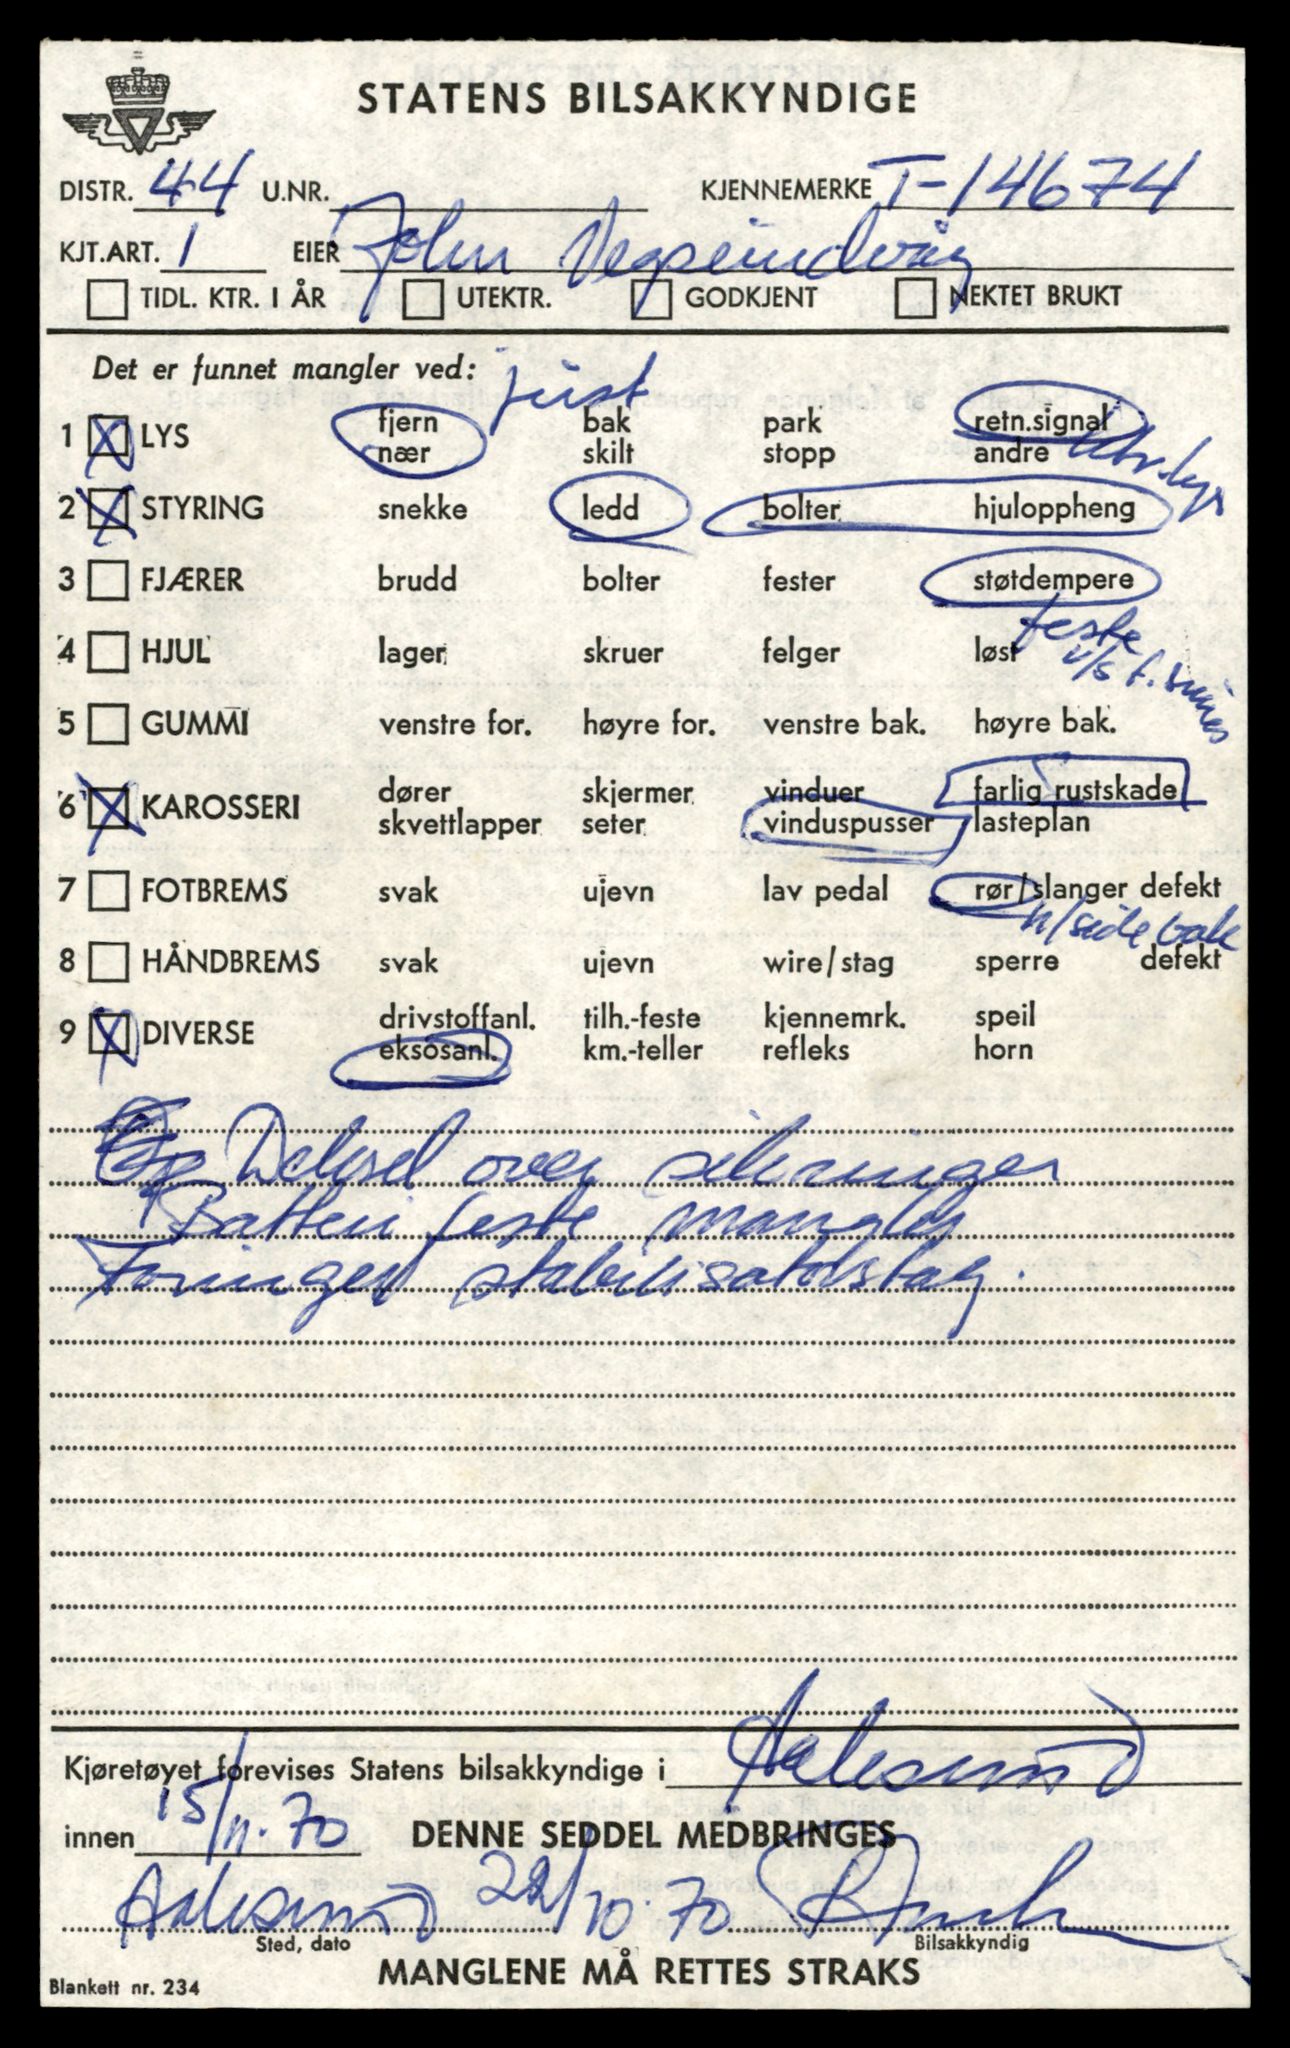 STATENS BILSAKKYNDIGE
DISTR. 44 U.NR. KJENNEMERKE T-14674
KJT.ART. 1 EIER John
TIDL. KTR. I ÅR UTEKTR. GODKJENT NEKTET BRUKT
Det er funnet mangler ved: just
1 LYS fjern bak park retn.signal
nær skilt stopp andre
2 STYRING snekke ledd bolter hjuloppheng
3 FJÆRER brudd bolter fester støtdempere
feste
4 HJUL lager skruer felger løst v/s f.
5 GUMMI venstre for. høyre for. venstre bak. høyre bak.
6 KAROSSERI dører skjermer vinduer farlig rustskade
skvettlapper seter vinduspusser lasteplan
7 FOTBREMS svak ujevn lav pedal rør/slanger defekt
h/side bak
8 HÅNDBREMS svak ujevn wire/stag sperre defekt
9 DIVERSE drivstoffanl. tilh.-feste kjennemrk. speil
eksosanl. km.-teller refleks horn
Deksel over sikringer
Batteri feste mangler
Foringer stabilisatorstag.
Kjøretøyet forevises Statens bilsakkyndige i Aalesund
innen 15/11.70 DENNE SEDDEL MEDBRINGES
Aalesund 22/10.70
Sted, dato Bilsakkyndig
MANGLENE MÅ RETTES STRAKS
Blankett nr. 234